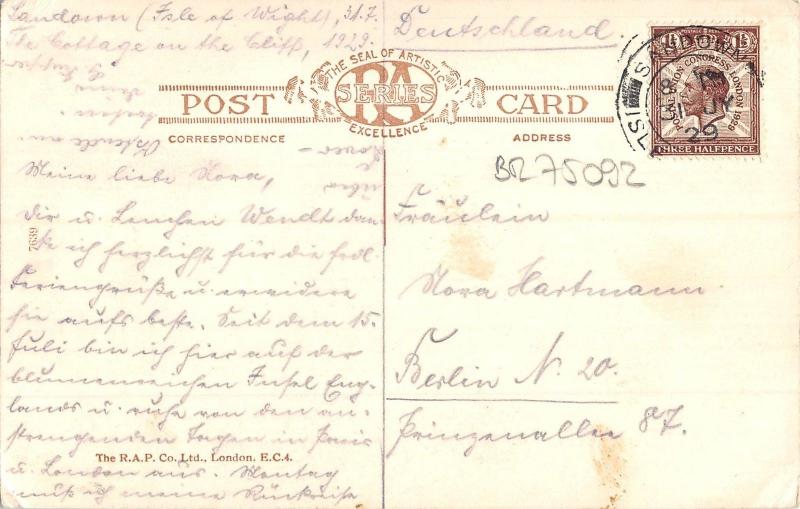 Sandown (Isle of Wight), 31.7.
The Cottage on the Cliff, 1929.
Deutschland.
THE SEAL OF ARTISTIC
RA
SERIES
EXCELLENCE
POST CARD
CORRESPONDENCE
ADDRESS
POSTAL UNION CONGRESS LONDON 1929
THREE HALFPENCE
SANDOWN
29
BR75092
7639
Meine liebe Nora,
dir u. Lenchen Wendt dan-
ke ich herzlichst für die frdl.
Feriengrüße u. erwidere
sie aufs beste. Seit dem 15.
Juli bin ich hier auf der
blumenreichen Insel Eng-
lands u. ruhe von den an-
strengenden Tagen in Paris
u. London aus. Montag
muß ich meine Rückreise
über
Dover –
Ostende an.
The R.A.P. Co. Ltd., London. E.C.4.
Fräulein
Nora Hartmann.
Berlin N. 20.
Prinzenallee 87.